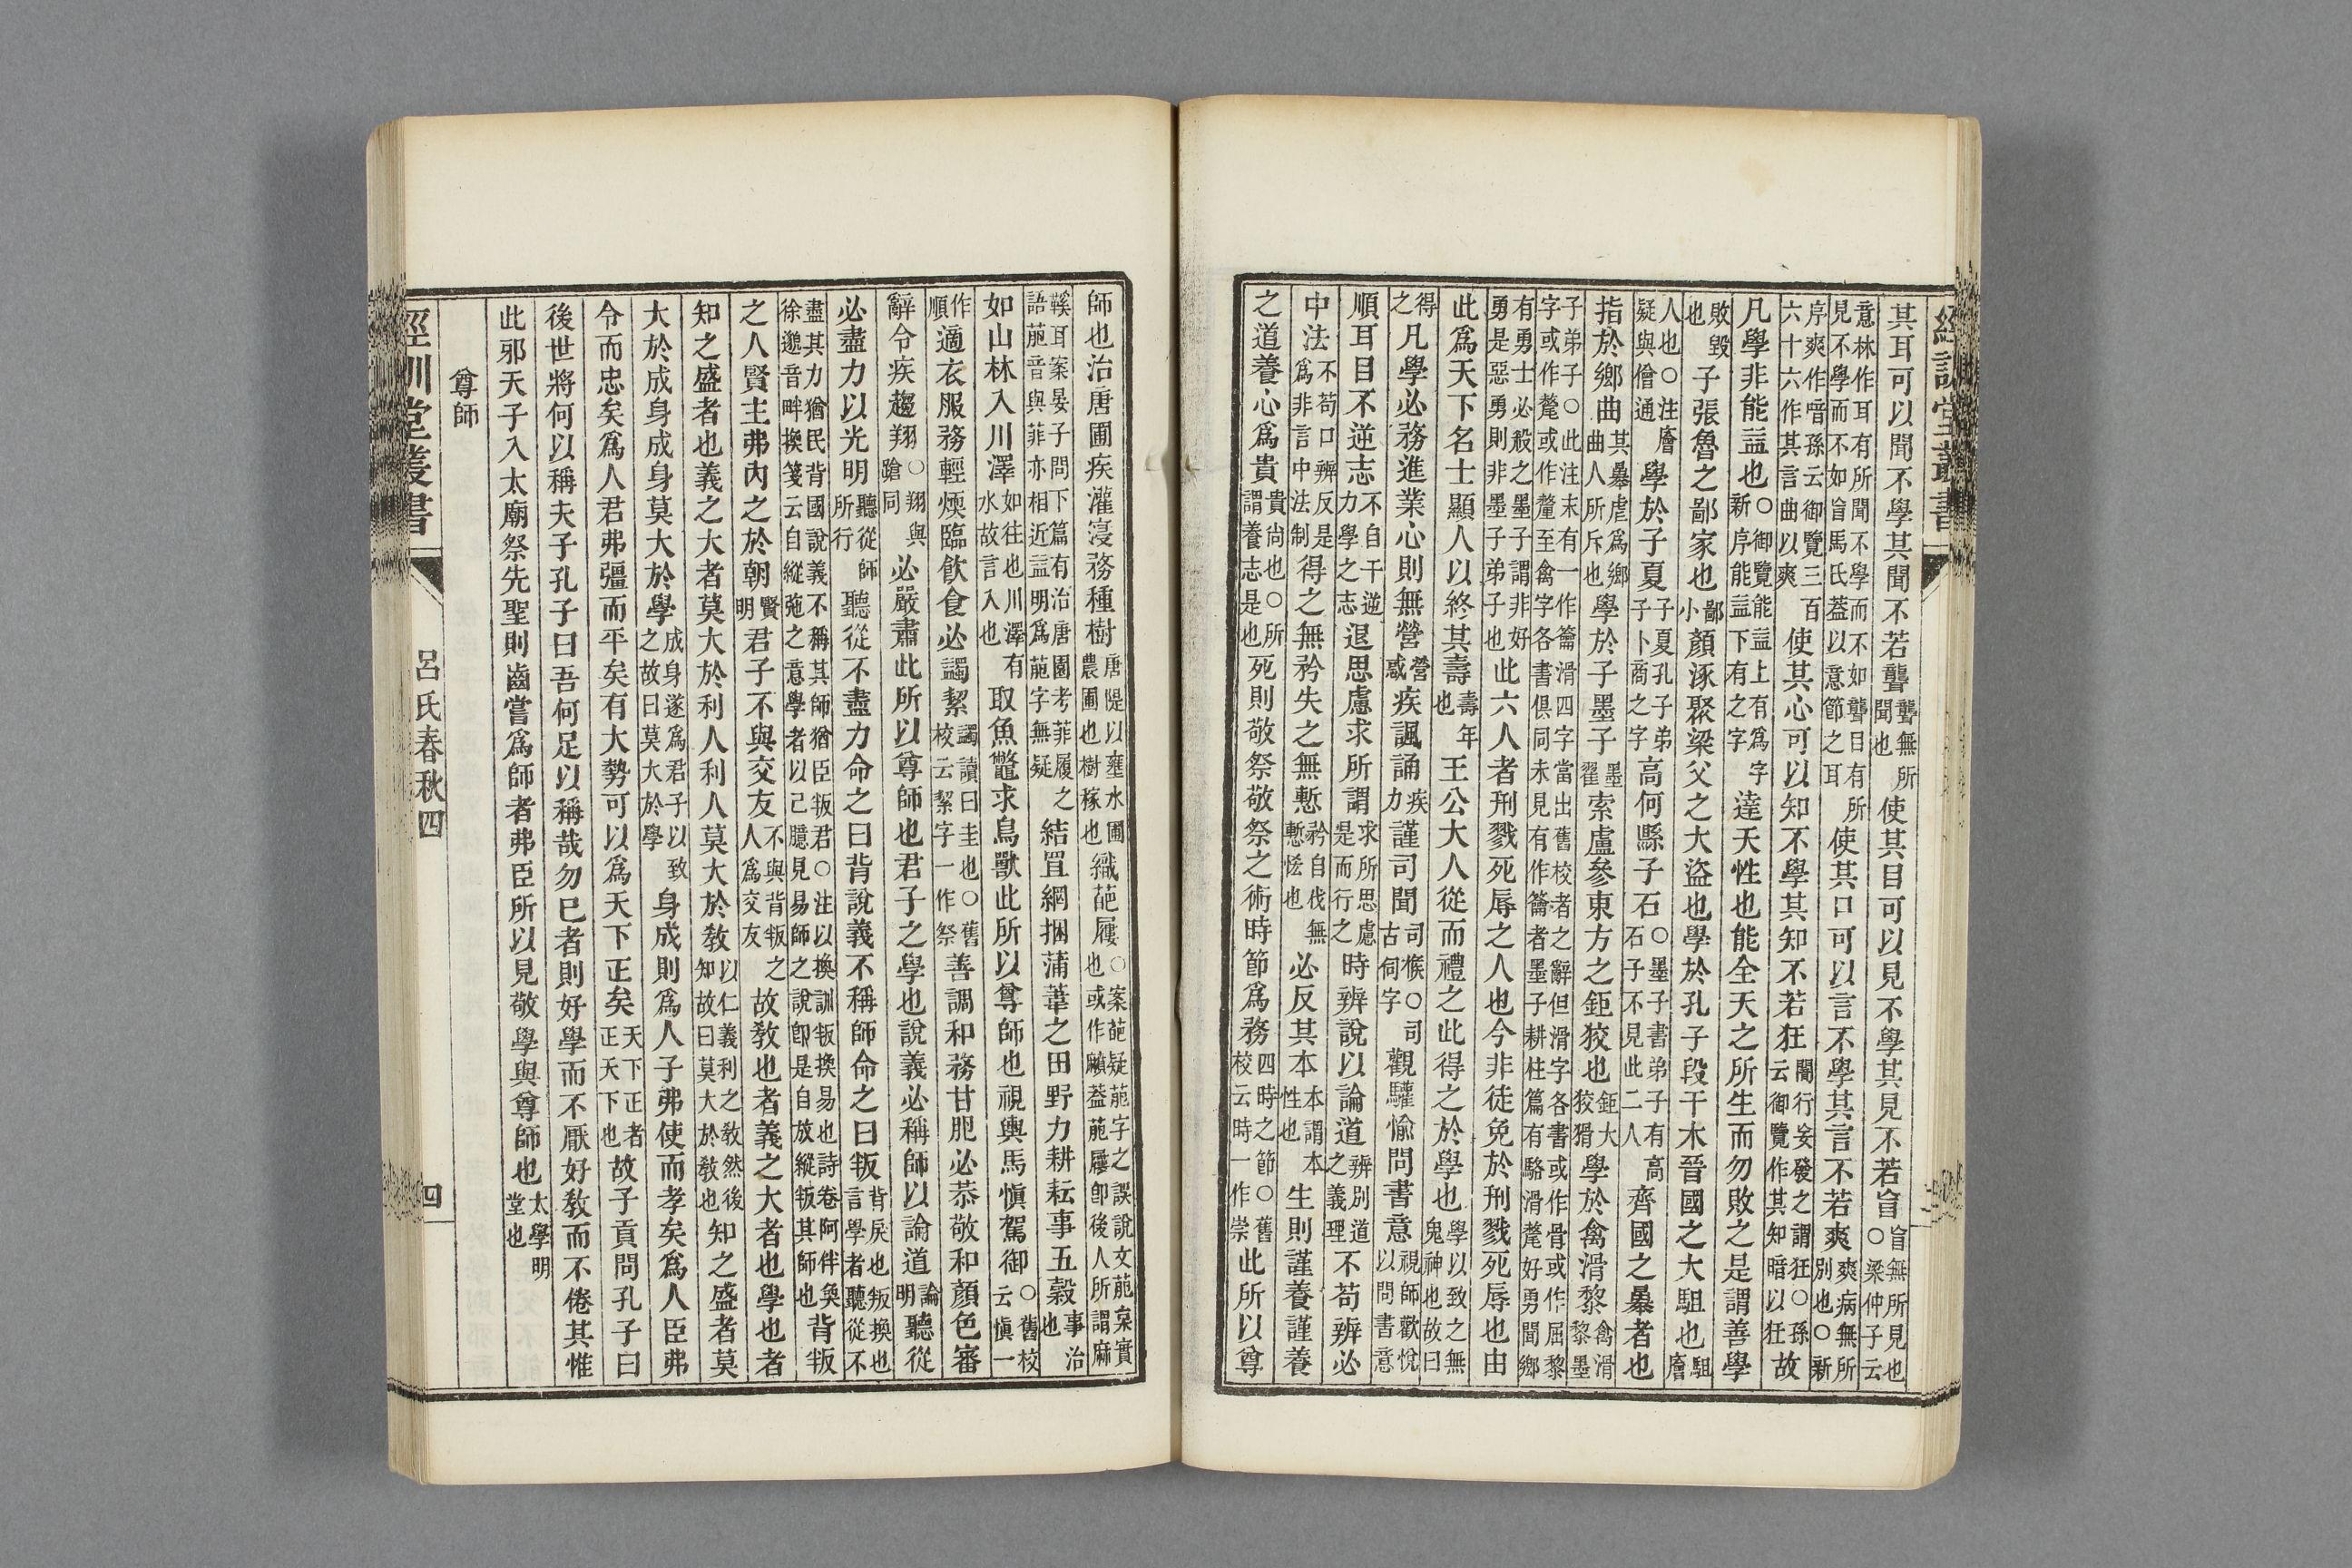 經訓堂叢書
其耳可以聞不學其聞不若聾聾無所聞也使其目可以見不學其見不若盲盲無所見也○梁仲子云
意林作耳有所聞不學而不如聾目有所見不學而不如盲馬氏葢以意節之耳使其口可以言不學其言不若爽爽病無所別也○新
序爽作喑孫云御覽三百六十六作其言曲以爽使其心可以知不學其知不若狂闇行妄發之謂狂○孫云御覽作其知暗以狂故
凡學非能益也○御覽能益上有爲字新序能益下有之字達天性也能全天之所生而勿敗之是謂善學
敗毀也子張魯之鄙家也鄙小顏涿聚梁父之大盜也學於孔子段干木晉國之大駔也駔廥
人也○注廥疑與儈通學於子夏子夏孔子弟子卜商之字高何縣子石○墨子書弟子有高石子不見此二人齊國之暴者也
指於鄉曲其暴虐爲鄉曲人所斥也學於子墨子墨翟索盧參東方之鉅狡也鉅大狡猾學於禽滑黎禽滑黎墨
子弟子○此注末有一作籥滑四字當出舊校者之辭但滑字各書或作骨或作屈黎字或作氂或作釐至禽字各書俱同未見有作籥者墨子耕柱篇有駱滑氂好勇聞鄉
有勇士必殺之墨子謂非好勇是惡勇則非墨子弟子也此六人者刑戮死辱之人也今非徒免於刑戮死辱也由
此爲天下名士顯人以終其壽壽年也王公大人從而禮之此得之於學也學以致之無鬼神也故曰
得之凡學必務進業心則無營營惑疾諷誦疾力謹司聞司候○司古伺字觀驩愉問書意視師歡悅以問書意
順耳目不逆志不自干逆力學之志退思慮求所謂求所思慮是而行之時辨說以論道辨別道之義理不苟辨必
中法不苟口辨反是爲非言中法制得之無矜失之無慙矜自伐無慙恡也必反其本本謂本性也生則謹養謹養
之道養心爲貴貴尚也○所謂養志是也死則敬祭敬祭之術時節爲務四時之節○舊校云時一作崇此所以尊
師也治唐圃疾灌寖務種樹唐隄以壅水圃農圃也樹稼也織葩屨○案葩疑萉字之誤說文萉枲實也或作黂葢萉屨卽後人所謂麻
鞵耳案晏子問下篇有治唐園考菲履之語萉音與菲亦相近益明爲萉字無疑結罝網捆蒲葦之田野力耕耘事五穀事治也
如山林入川澤如往也川澤有水故言入也取魚鼈求鳥獸此所以尊師也視輿馬愼駕御○舊校云愼一
作順適衣服務輕煗臨飲食必蠲絜蠲讀曰圭也○舊校云絜字一作祭善調和務甘肥必恭敬和顏色審
辭令疾趨翔○翔與蹌同必嚴肅此所以尊師也君子之學也說義必稱師以論道論明聽從
必盡力以光明聽從師所行聽從不盡力命之曰背說義不稱師命之曰叛背戾也叛換也言學者聽從不
盡其力猶民背國說義不稱其師猶臣叛君○注以換訓叛換易也詩卷阿伴奐徐邈音畔換箋云自縱弛之意學者以己臆見易師之說卽是自放縱叛其師也背叛
之人賢主弗內之於朝賢明君子不與交友不與背叛之人爲交友故敎也者義之大者也學也者
知之盛者也義之大者莫大於利人利人莫大於敎以仁義利之敎然後知故曰莫大於敎也知之盛者莫
大於成身成身莫大於學成身遂爲君子以致之故曰莫大於學身成則爲人子弗使而孝矣爲人臣弗
令而忠矣爲人君弗彊而平矣有大勢可以爲天下正矣天下正者正天下也故子貢問孔子曰
後世將何以稱夫子孔子曰吾何足以稱哉勿已者則好學而不厭好敎而不倦其惟
此邪天子入太廟祭先聖則齒嘗爲師者弗臣所以見敬學與尊師也太學明堂也
尊師
經訓堂叢書 呂氏春秋四 四